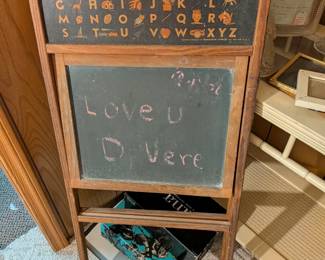 G H I J K L
M N O P Q R
S T U V W X Y Z
Love U
D Vere